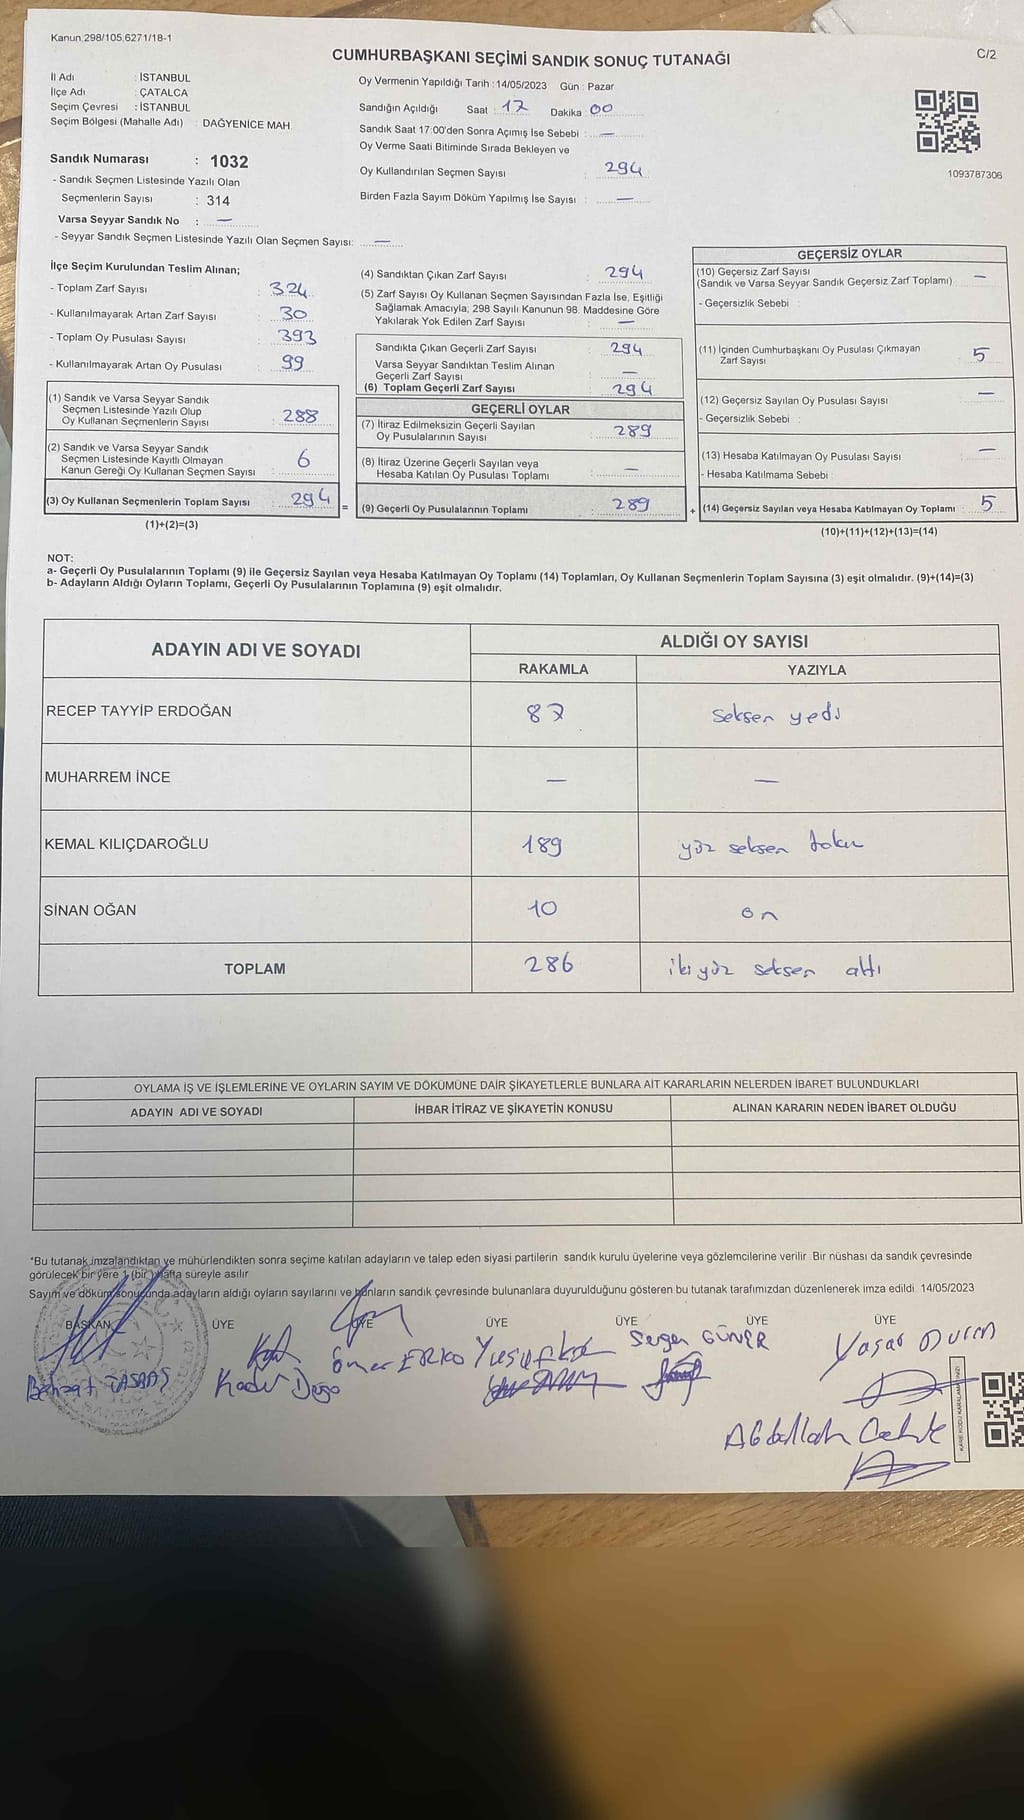 Kanun;298/105;6271/18-1
C/2
CUMHURBAŞKANI SEÇİMİ SANDIK SONUÇ TUTANAĞI
İl Adı : İSTANBUL
İlçe Adı : ÇATALCA
Seçim Çevresi : İSTANBUL
Seçim Bölgesi (Mahalle Adı) : DAĞYENİCE MAH.
Sandık Numarası : 1032
- Sandık Seçmen Listesinde Yazılı Olan
Seçmenlerin Sayısı : 314
Varsa Seyyar Sandık No : —
- Seyyar Sandık Seçmen Listesinde Yazılı Olan Seçmen Sayısı: —
Oy Vermenin Yapıldığı Tarih : 14/05/2023 Gün : Pazar
Sandığın Açıldığı Saat : 17 Dakika : 00
Sandık Saat 17:00'den Sonra Açımış İse Sebebi : —
Oy Verme Saati Bitiminde Sırada Bekleyen ve
Oy Kullandırılan Seçmen Sayısı : 294
Birden Fazla Sayım Döküm Yapılmış İse Sayısı : —
1093787306
İlçe Seçim Kurulundan Teslim Alınan;
- Toplam Zarf Sayısı : 324
- Kullanılmayarak Artan Zarf Sayısı : 30
- Toplam Oy Pusulası Sayısı : 393
- Kullanılmayarak Artan Oy Pusulası : 99
(1) Sandık ve Varsa Seyyar Sandık
Seçmen Listesinde Yazılı Olup
Oy Kullanan Seçmenlerin Sayısı : 288
(2) Sandık ve Varsa Seyyar Sandık
Seçmen Listesinde Kayıtlı Olmayan
Kanun Gereği Oy Kullanan Seçmen Sayısı : 6
(3) Oy Kullanan Seçmenlerin Toplam Sayısı : 294 =
(1)+(2)=(3)
(4) Sandıktan Çıkan Zarf Sayısı : 294
(5) Zarf Sayısı Oy Kullanan Seçmen Sayısından Fazla İse, Eşitliği
Sağlamak Amacıyla; 298 Sayılı Kanunun 98. Maddesine Göre
Yakılarak Yok Edilen Zarf Sayısı : —
Sandıkta Çıkan Geçerli Zarf Sayısı : 294
Varsa Seyyar Sandıktan Teslim Alınan
Geçerli Zarf Sayısı : —
(6) Toplam Geçerli Zarf Sayısı : 294
GEÇERLİ OYLAR
(7) İtiraz Edilmeksizin Geçerli Sayılan
Oy Pusulalarının Sayısı : 289
(8) İtiraz Üzerine Geçerli Sayılan veya
Hesaba Katılan Oy Pusulası Toplamı : —
(9) Geçerli Oy Pusulalarının Toplamı : 289 +
GEÇERSİZ OYLAR
(10) Geçersiz Zarf Sayısı
(Sandık ve Varsa Seyyar Sandık Geçersiz Zarf Toplamı) : —
- Geçersizlik Sebebi :
(11) İçinden Cumhurbaşkanı Oy Pusulası Çıkmayan
Zarf Sayısı : 5
(12) Geçersiz Sayılan Oy Pusulası Sayısı : —
- Geçersizlik Sebebi :
(13) Hesaba Katılmayan Oy Pusulası Sayısı : —
- Hesaba Katılmama Sebebi :
(14) Geçersiz Sayılan veya Hesaba Katılmayan Oy Toplamı : 5
(10)+(11)+(12)+(13)=(14)
NOT:
a- Geçerli Oy Pusulalarının Toplamı (9) ile Geçersiz Sayılan veya Hesaba Katılmayan Oy Toplamı (14) Toplamları, Oy Kullanan Seçmenlerin Toplam Sayısına (3) eşit olmalıdır. (9)+(14)=(3)
b- Adayların Aldığı Oyların Toplamı, Geçerli Oy Pusulalarının Toplamına (9) eşit olmalıdır.
ADAYIN ADI VE SOYADI
ALDIĞI OY SAYISI
RAKAMLA YAZIYLA
RECEP TAYYİP ERDOĞAN 87 seksen yedi
MUHARREM İNCE — —
KEMAL KILIÇDAROĞLU 189 yüz seksen doku
SİNAN OĞAN 10 on
TOPLAM 286 iki yüz seksen altı
OYLAMA İŞ VE İŞLEMLERİNE VE OYLARIN SAYIM VE DÖKÜMÜNE DAİR ŞİKAYETLERLE BUNLARA AİT KARARLARIN NELERDEN İBARET BULUNDUKLARI
ADAYIN ADI VE SOYADI İHBAR İTİRAZ VE ŞİKAYETİN KONUSU ALINAN KARARIN NEDEN İBARET OLDUĞU
*Bu tutanak imzalandıktan ve mühürlendikten sonra seçime katılan adayların ve talep eden siyasi partilerin sandık kurulu üyelerine veya gözlemcilerine verilir. Bir nüshası da sandık çevresinde
görülecek bir yere 1 (bir) hafta süreyle asılır.
Sayım ve döküm sonucunda adayların aldığı oyların sayılarını ve bunların sandık çevresinde bulunanlara duyurulduğunu gösteren bu tutanak tarafımızdan düzenlenerek imza edildi. 14/05/2023
BAŞKAN ÜYE ÜYE ÜYE ÜYE ÜYE ÜYE
Sezgen GÜNER
Abdullah